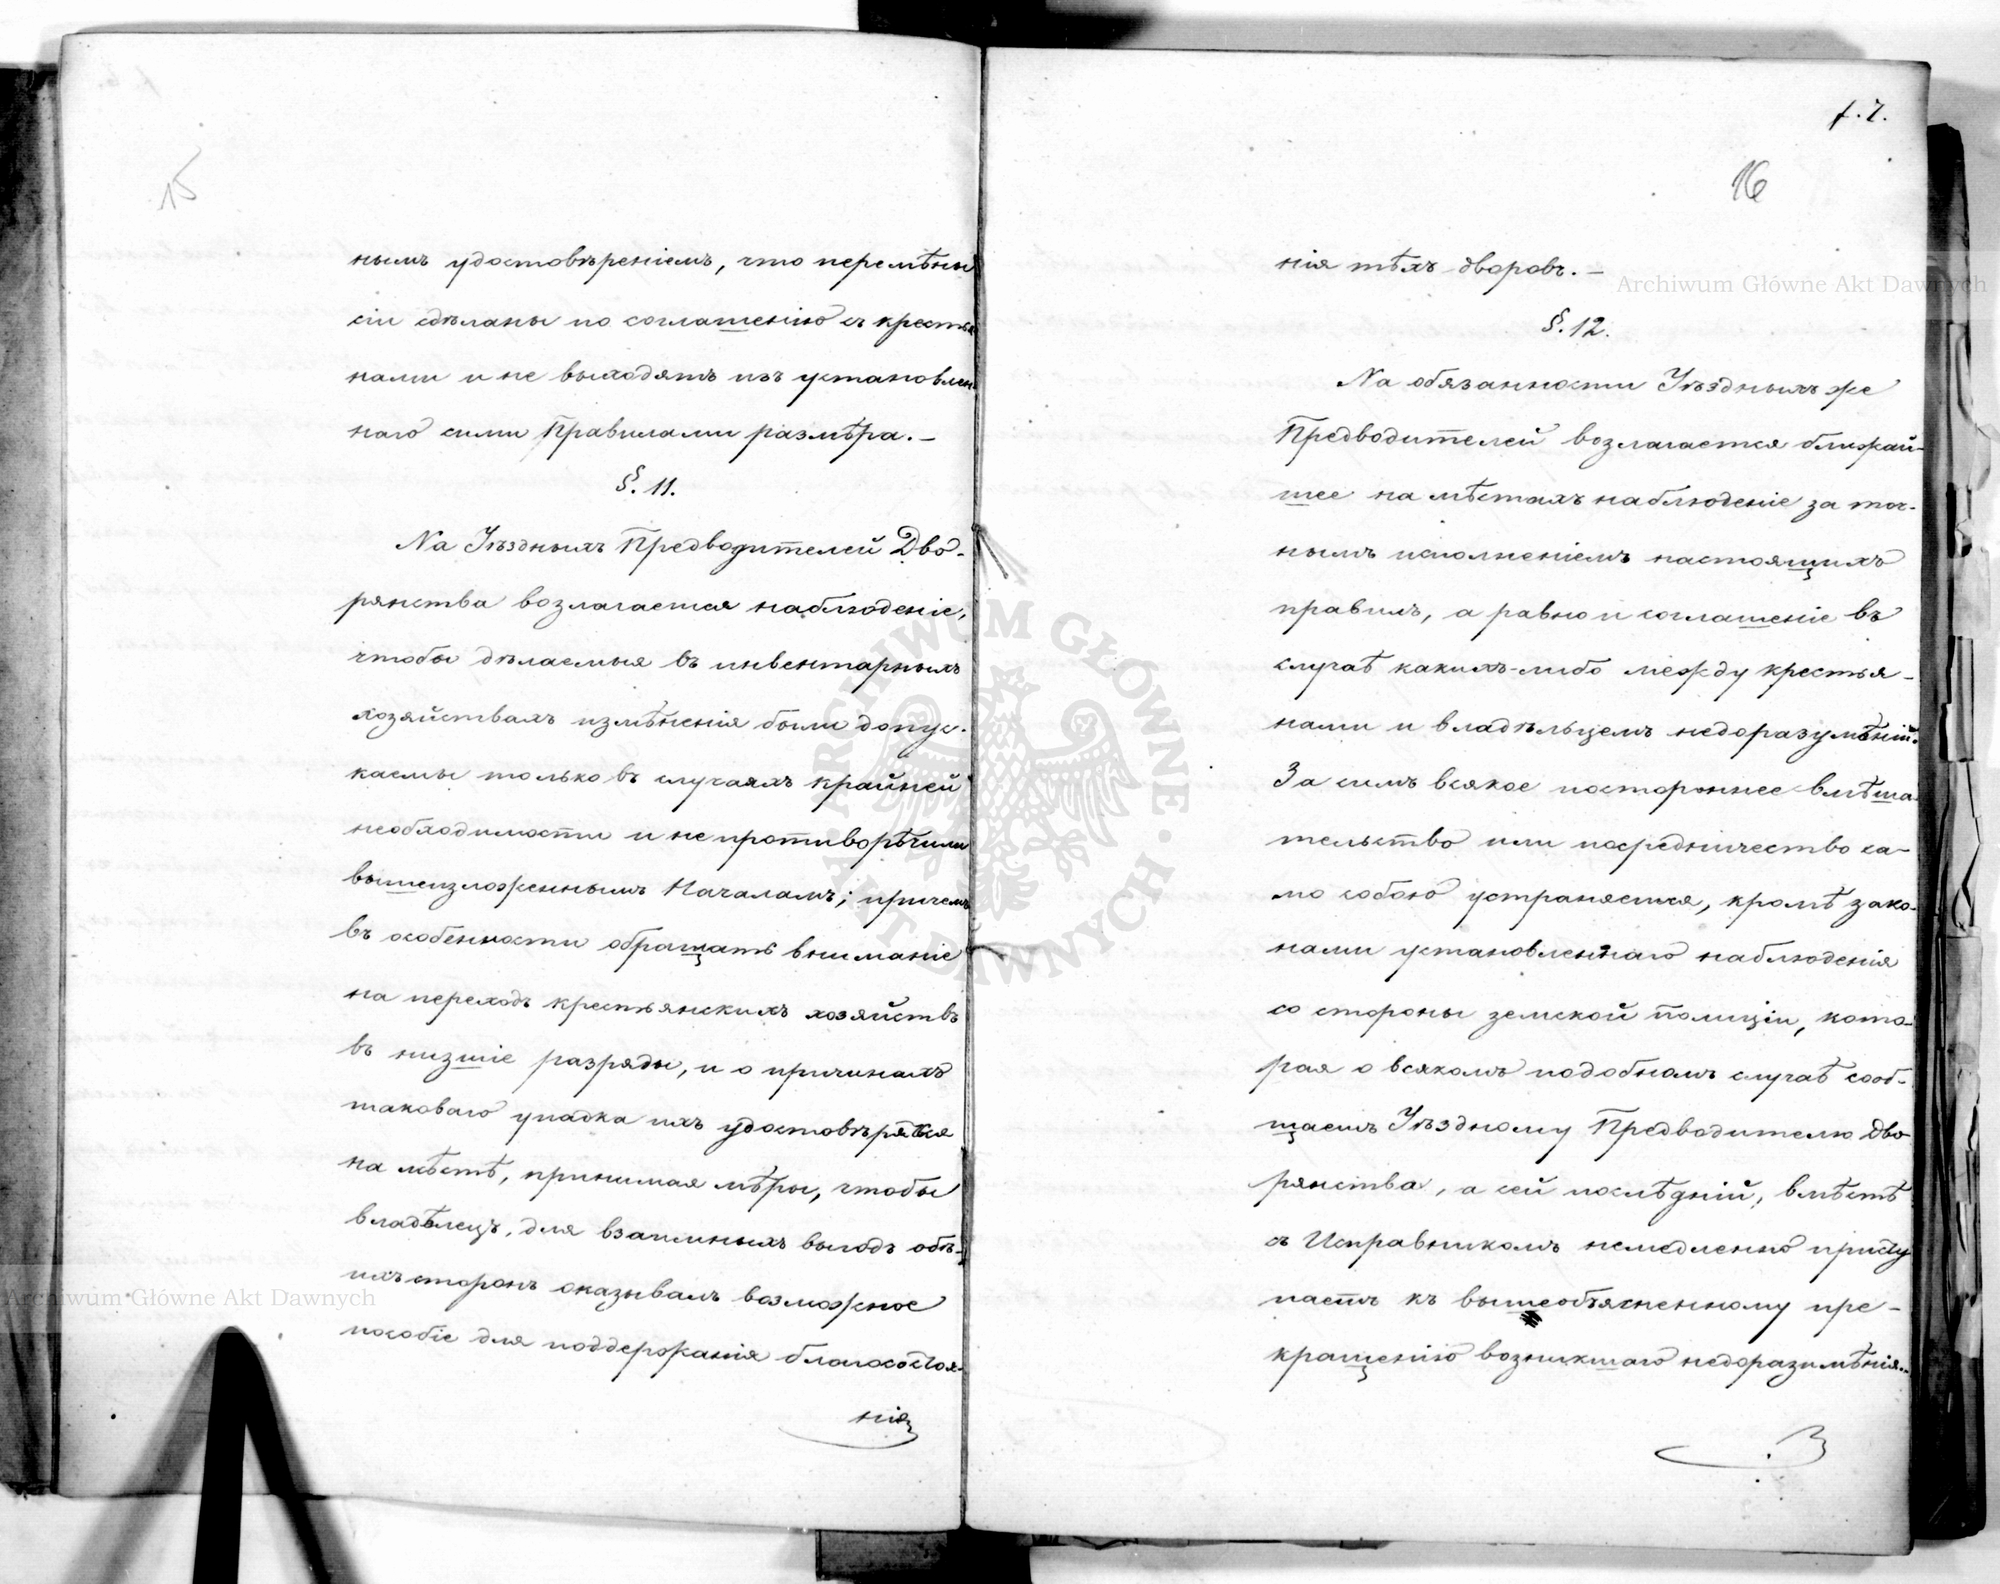 15
нымъ удостовѣреніемъ, что перемѣны
сіи сдѣланы по соглашенію съ крестья
нами и не выходятъ изъ установлен
наго сими Правилами размѣра. —
§. 11.
На Уѣздныхъ Предводителей Дво-
рянства возлагается наблюденіе,
чтобы дѣлаемыя въ инвентарныхъ
хозяйствахъ измѣненія были допус-
каемы только въ случаяхъ крайней
необходимости и не противорѣчили
вышеизложеннымъ Началамъ; причемъ
въ особенности обращать вниманіе
на переходъ крестьянскихъ хозяйствъ
въ низшіе разряды, и о причинахъ
таковаго упадка ихъ удостовѣряться
на мѣстѣ, принимая мѣры, чтобы
владѣлецъ, для взаимныхъ выгодъ обѣ-
ихъ сторонъ оказывалъ возможное
пособіе для поддержанія благосостоя-
нія
f. 7.
16
нія тѣхъ дворовъ. —
§. 12.
На обязанности Уѣздныхъ же
Предводителей возлагается ближай-
шее на мѣстахъ наблюденіе за точ-
нымъ исполненіемъ настоящихъ
правилъ, а равно и соглашеніе въ
случаѣ какихъ-либо между крестья-
нами и владѣльцемъ недоразумѣній.
За симъ всякое постороннее вмѣша
тельство или посредничество са-
мо собою устраняется, кромѣ зако-
нами установленнаго наблюденія
со стороны земской полиціи, кото-
рая о всякомъ подобномъ случаѣ сооб-
щаетъ Уѣздному Предводителю Дво
рянства, а сей послѣдній, вмѣстѣ
съ Исправникомъ немедленно присту
паетъ къ вышеобъясненному пре-
кращенію возникшаго недоразумѣнія..
Archiwum Główne Akt Dawnych
Archiwum Główne Akt Dawnych
ARCHIWUM GŁÓWNE • AKT DAWNYCH •